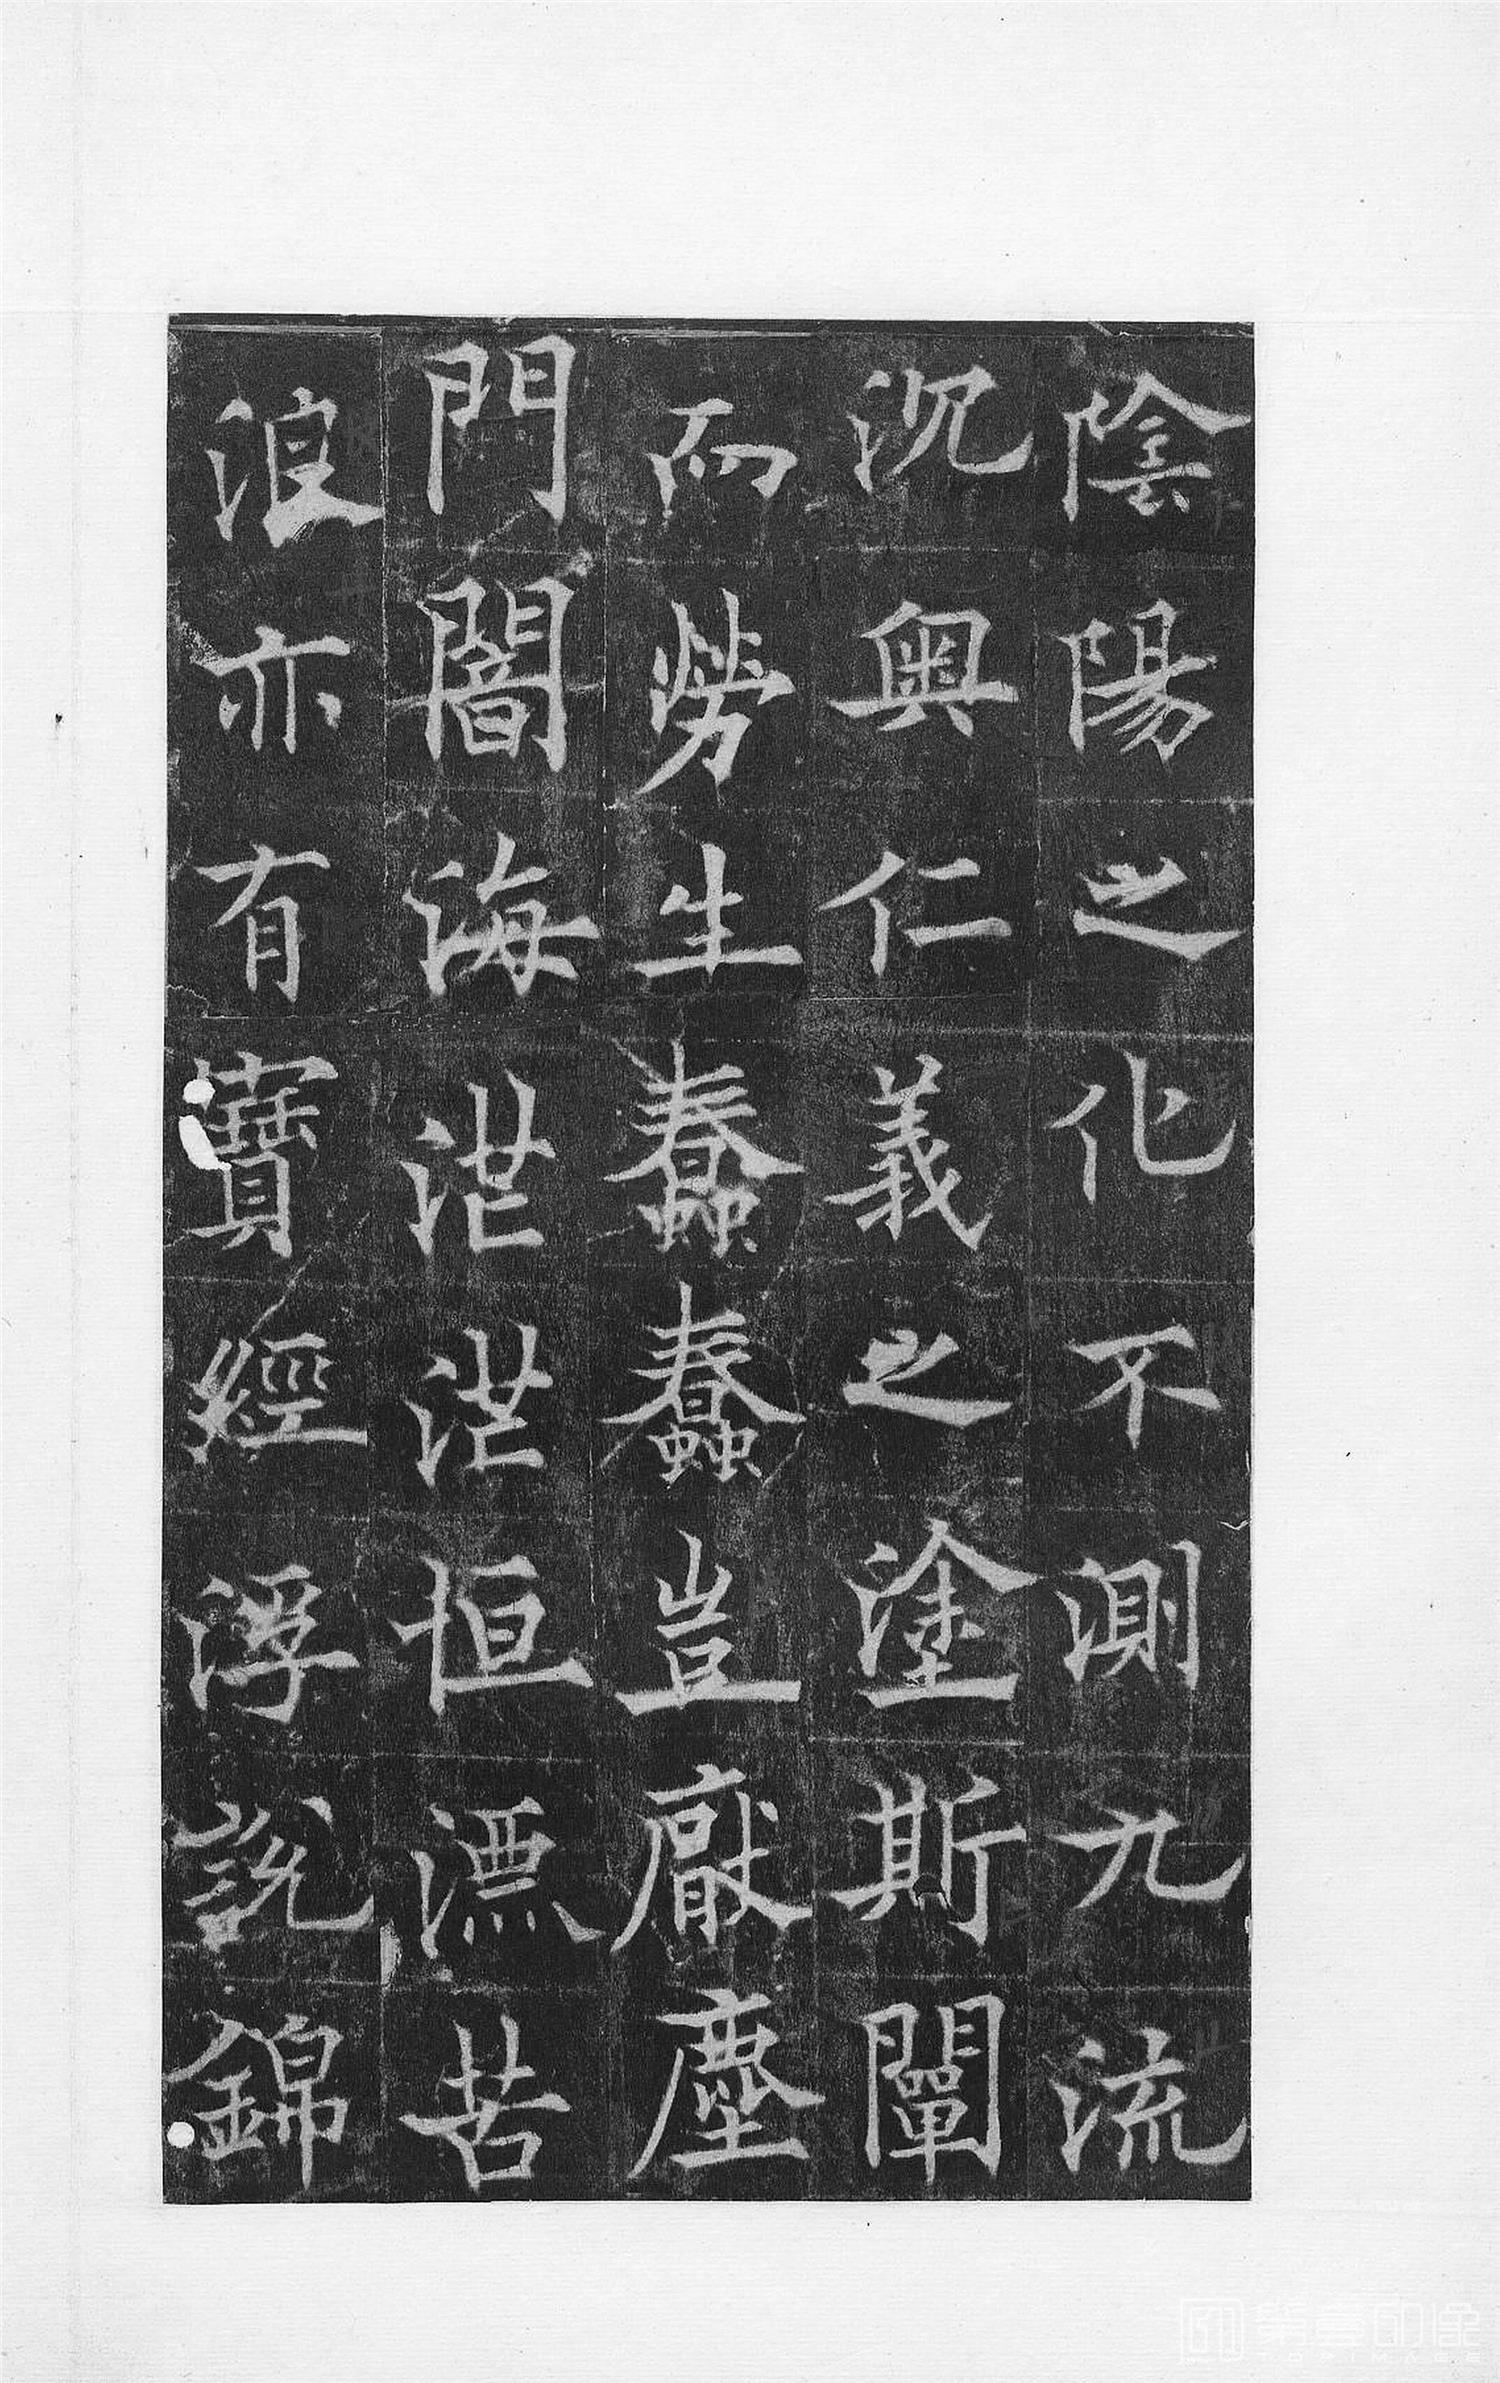 陰陽之化不測九流
沉奧仁義之塗斯闡
而勞生蠢蠢豈厭塵
門闇海茫茫恒漂苦
浪亦有寶經浮說錦
第壹印像
TOPIMAGE